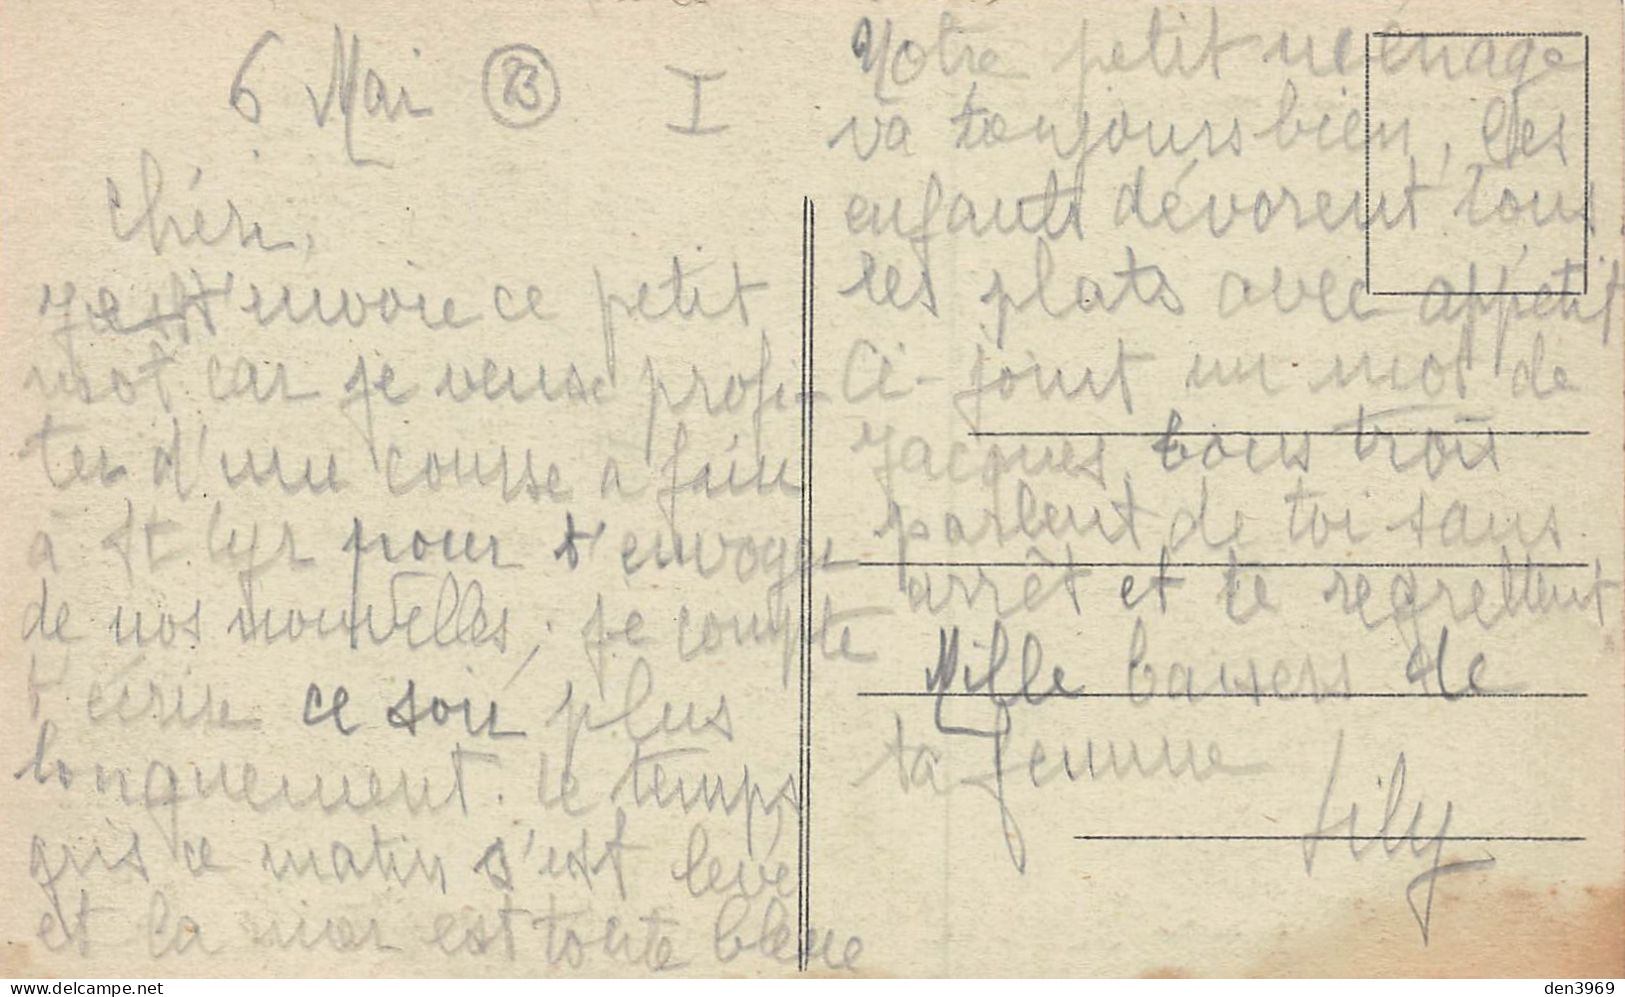 6 Mai (23) I
Chéri,
Je t'envoie ce petit
mot car je veux profi-
ter d'une course à faire
à St Cyr pour t'envoyer
de nos nouvelles ; je compte
t'écrire ce soir plus
longuement. Le temps
gris ce matin s'est levé
et la mer est toute bleue
Notre petit ménage
va toujours bien, les
enfants dévorent tous
les plats avec appétit
Ci-joint un mot de
Jacques, tous trois
parlent de toi sans
arrêt et te regrettent
Mille baisers de
ta femme
Lily
den3969